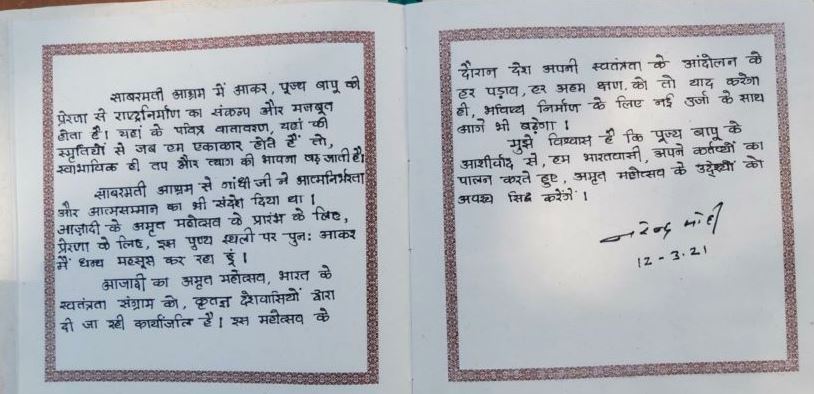 साबरमती आश्रम में आकर, पूज्य बापू की
प्रेरणा से राष्ट्रनिर्माण का संकल्प और मजबूत
होता है। यहां के पवित्र वातावरण, यहां की
स्मृतियों से जब हम एकाकार होते हैं तो,
स्वाभाविक ही तप और त्याग की भावना बढ़ जाती है।
साबरमती आश्रम से गांधी जी ने आत्मनिर्भरता
और आत्मसम्मान का भी संदेश दिया था।
आज़ादी के अमृत महोत्सव के प्रारंभ के लिए,
प्रेरणा के लिए, इस पुण्य स्थली पर पुनः आकर
मैं धन्य महसूस कर रहा हूं।
आजादी का अमृत महोत्सव, भारत के
स्वतंत्रता संग्राम को, कृतज्ञ देशवासियों द्वारा
दी जा रही कार्यांजलि है। इस महोत्सव के
दौरान देश अपनी स्वतंत्रता के आंदोलन के
हर पड़ाव, हर अहम क्षण, को तो याद करेगा
ही, भविष्य निर्माण के लिए नई उर्जा के साथ
आगे भी बढ़ेगा।
मुझे विश्वास है कि पूज्य बापू के
आशीर्वाद से, हम भारतवासी, अपने कर्तव्यों का
पालन करते हुए, अमृत महोत्सव के उद्देश्यों को
अवश्य सिद्ध करेंगें।
नरेन्द्र मोदी
12-3-21